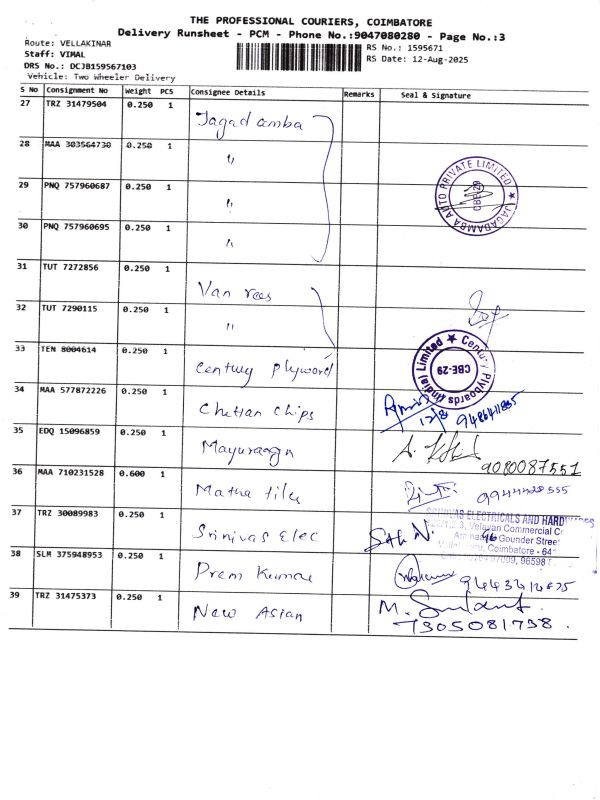 THE PROFESSIONAL COURIERS, COIMBATORE
Delivery Runsheet - PCM - Phone No.:9047080280 - Page No.:3
Route: VELLAKINAR
RS No.: 1595671
Staff: VIMAL
RS Date: 12-Aug-2025
DRS No.: DCJB159567103
Vehicle: Two Wheeler Delivery
S No Consignment No Weight PCS Consignee Details Remarks Seal & Signature
27 TRZ 31479504 0.250 1 Jagadamba
28 MAA 303564730 0.250 1 "
29 PNQ 757960687 0.250 1 "
JAGADAMBA AUTO PRIVATE LIMITED
CBE-29
30 PNQ 757960695 0.250 1 "
31 TUT 7272856 0.250 1 Van rees
32 TUT 7290115 0.250 1 "
33 TEN 8004614 0.250 1 Century Plyword
Century Plyboards (India) Limited
CBE-29
34 MAA 577872226 0.250 1 Chettan Chips
12/8
35 EDQ 15096859 0.250 1 Mayuraagn
9080087551
36 MAA 710231528 0.600 1 Matha tiles
37 TRZ 30089983 0.250 1 Srinivas Elec
SRINIVAS ELECTRICALS AND HARDWARES
Velavan Commercial
Gounder Street
Coimbatore - 641
38 SLM 375948953 0.250 1 Prem Kumar
39 TRZ 31475373 0.250 1 New Asian
7305081738